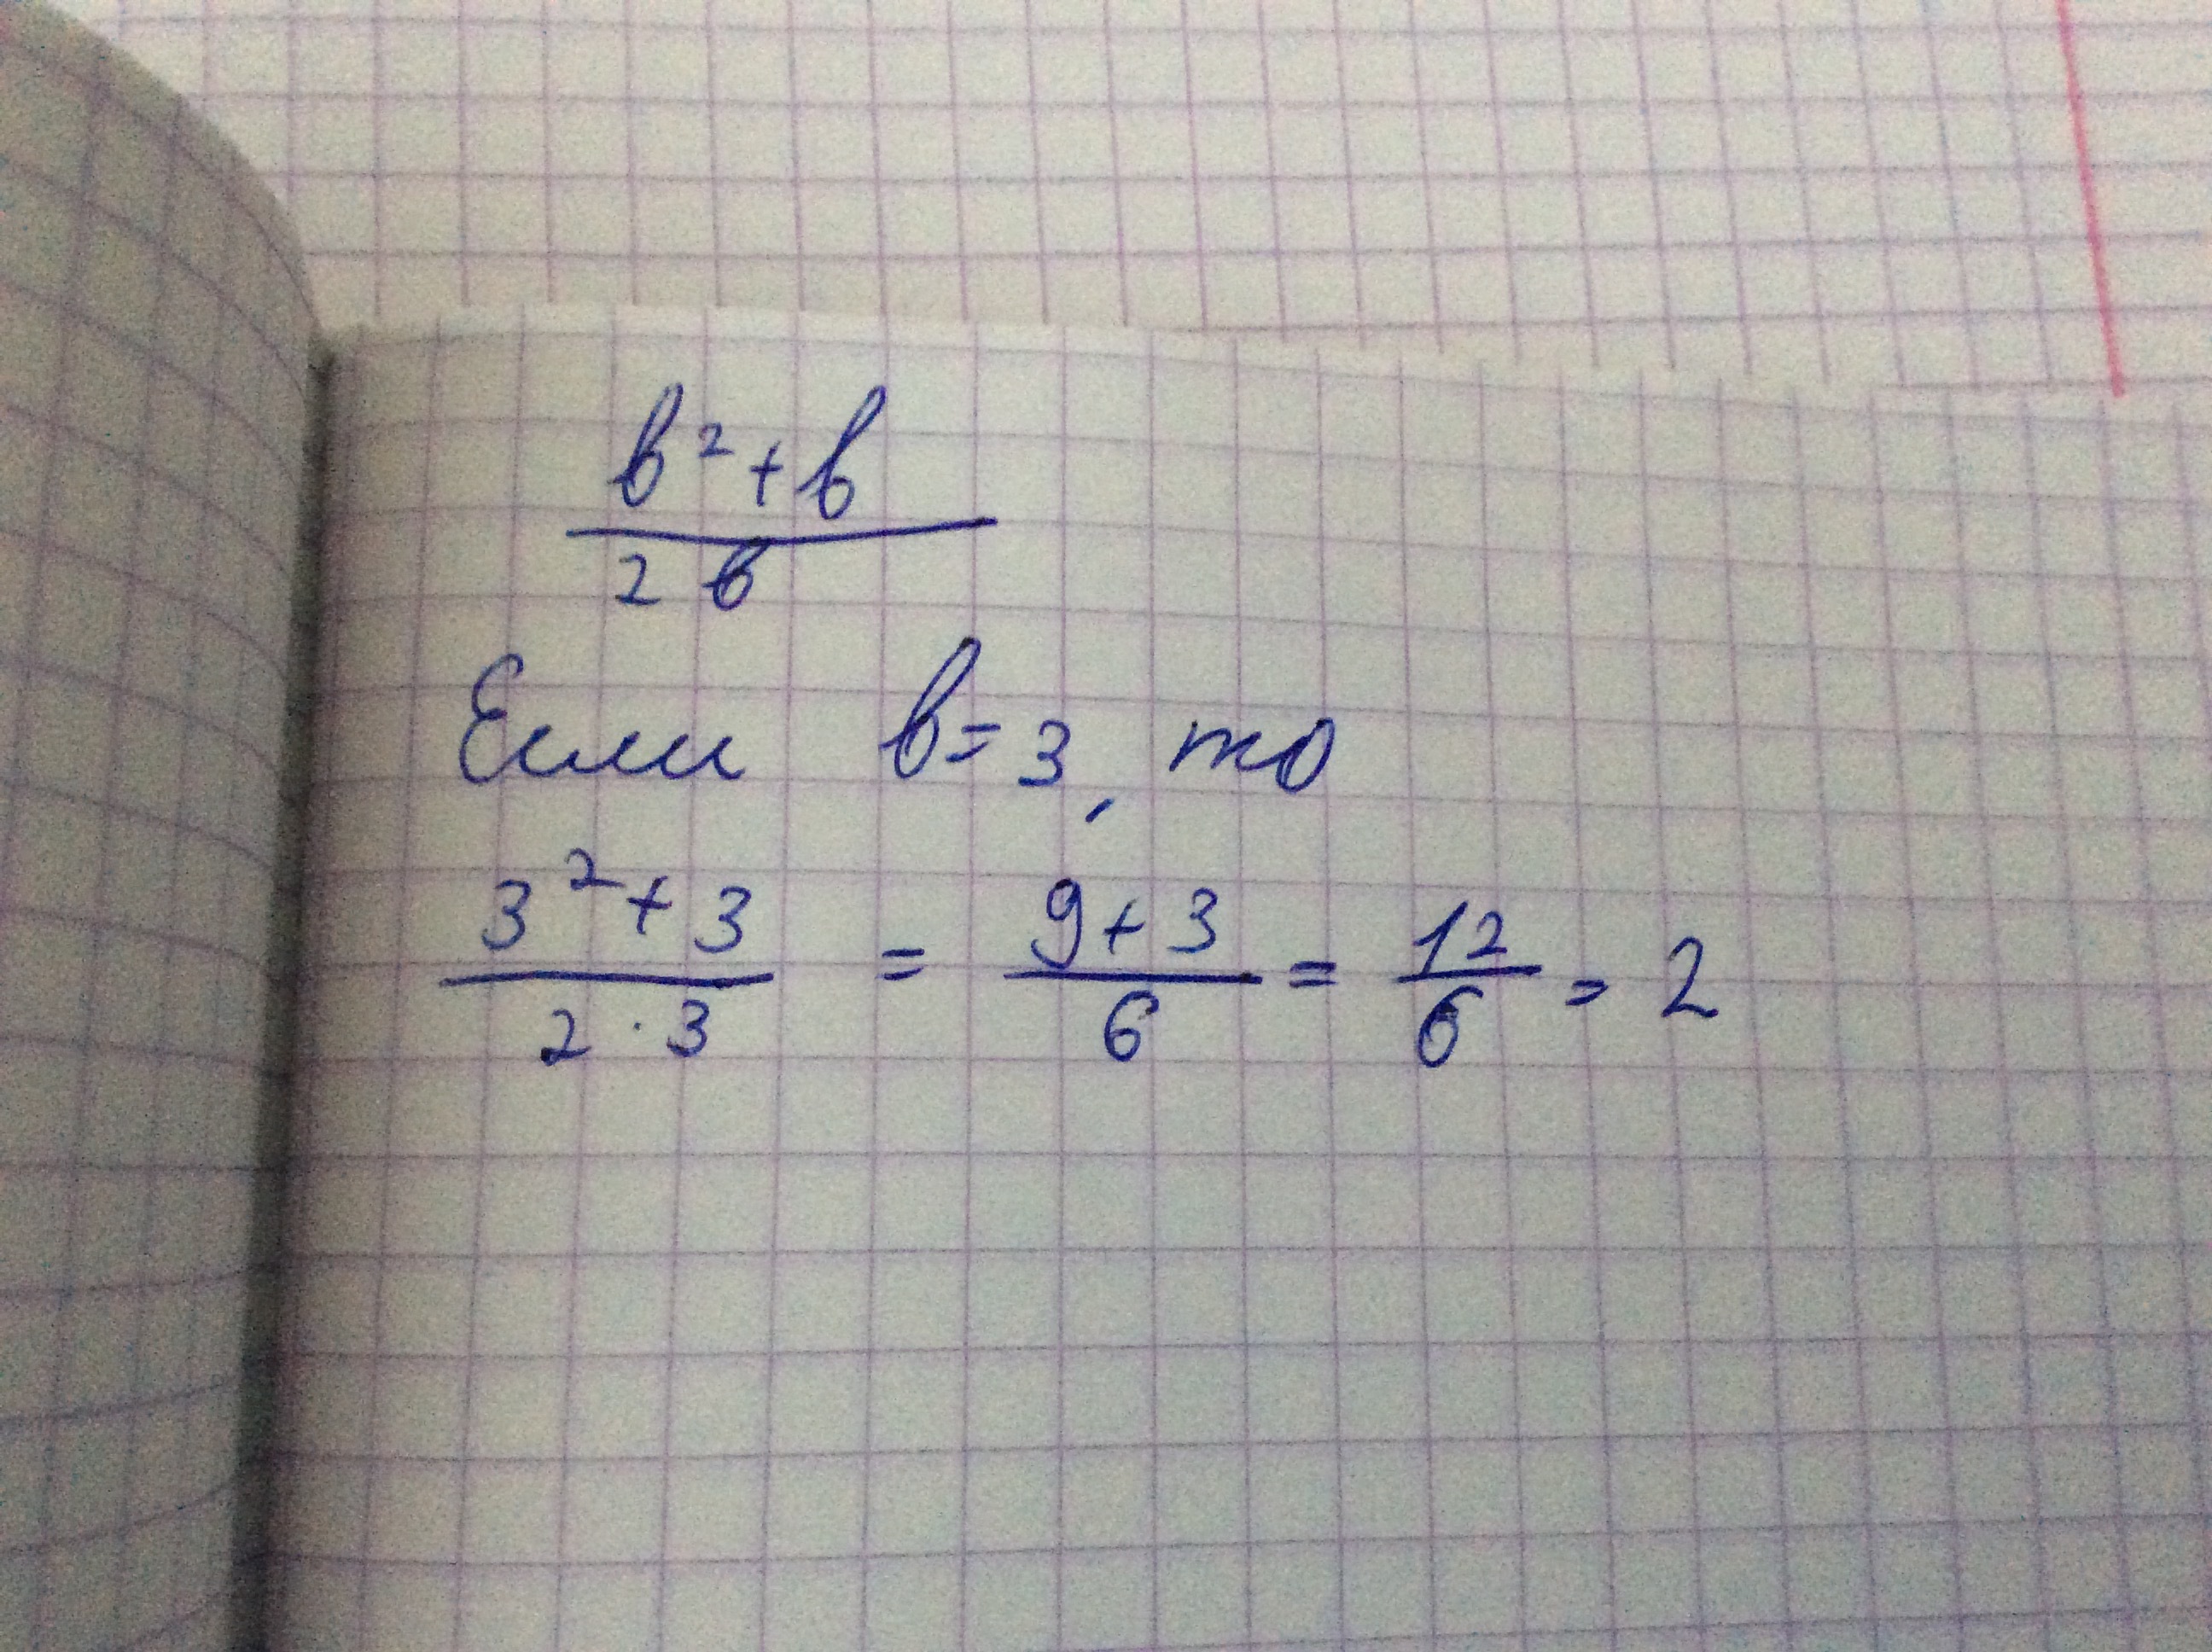 b² + b / 2b
Если b = 3, то
3² + 3 / 2 · 3 = 9 + 3 / 6 = 12 / 6 = 2